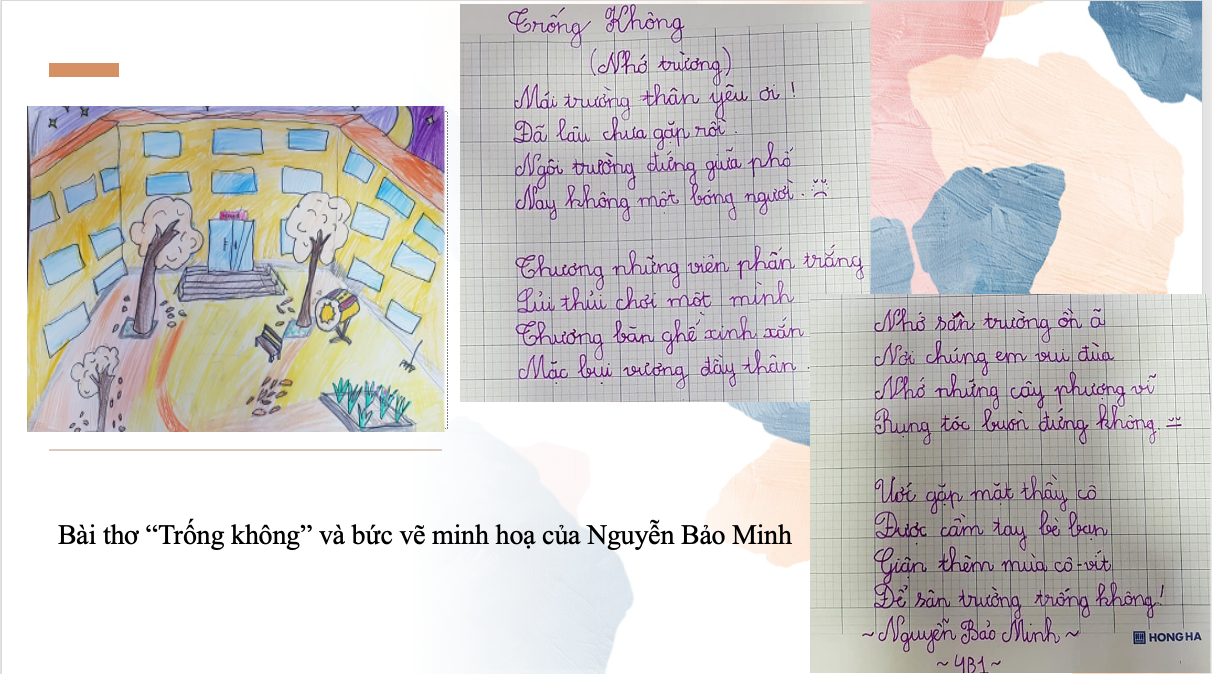 Trống Không
(Nhớ trường)
Mái trường thân yêu ơi !
Đã lâu chưa gặp rồi.
Ngôi trường đứng giữa phố
Nay không một bóng người.
Thương những viên phấn trắng
Lủi thủi chơi một mình
Thương bàn ghế xinh xắn
Mặc bụi vương đầy thân.
Nhớ sân trường ồn ã
Nơi chúng em vui đùa
Nhớ những cây phượng vĩ
Rụng tóc buồn đứng không.
Ước gặp mặt thầy cô
Được cầm tay bè bạn
Giận thêm mùa cô-vít
Để sân trường trống không!
~Nguyễn Bảo Minh~
~4B1~
HONG HA
Bài thơ “Trống không” và bức vẽ minh hoạ của Nguyễn Bảo Minh